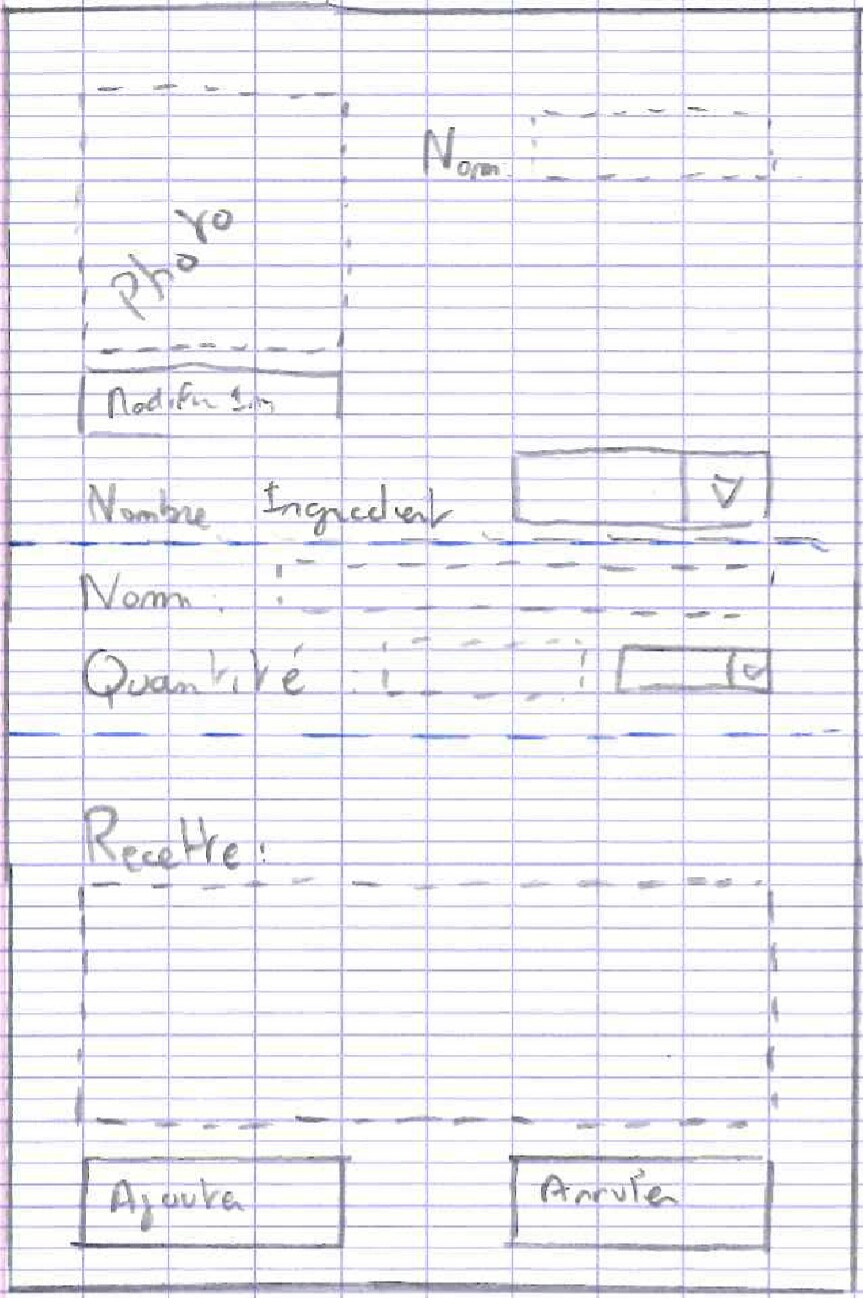 Photo
Nom
Modifier Im
Nombre Ingredient
Nom :
Quantité :
Recette :
Ajouter
Annuler